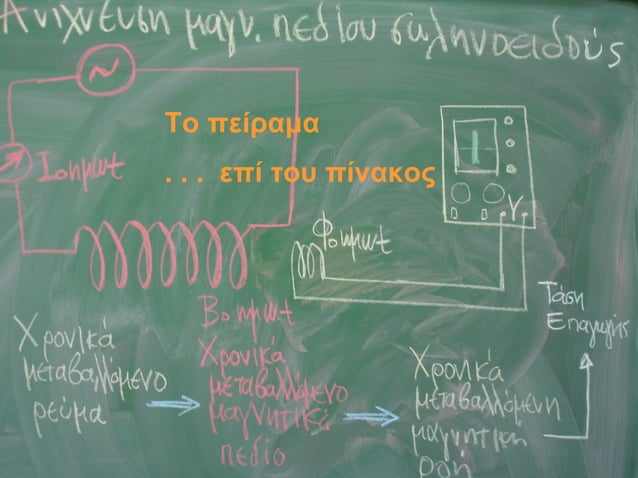 Ανίχνευση μαγν. πεδίου σωληνοειδούς
~
Το πείραμα
. . . επί του πίνακος
I₀ημωt
Φ₀ημωt
Y
B₀ημωt
Τάση
Επαγωγής
Χρονικά
μεταβαλλόμενο
ρεύμα
Χρονικά
μεταβαλλόμενο
μαγνητικό
πεδίο
Χρονικά
μεταβαλλόμενη
μαγνητική
ροή